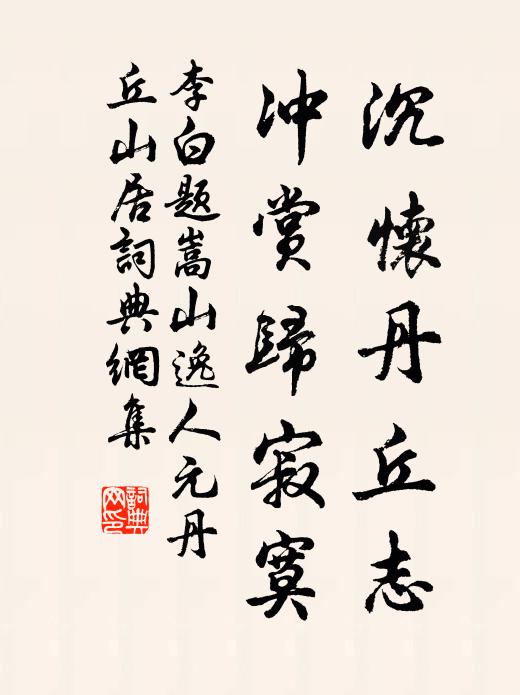 沉懷丹丘志
冲賞歸寂寞
李白題嵩山逸人元丹
丘山居詞典網集
詞典
网印